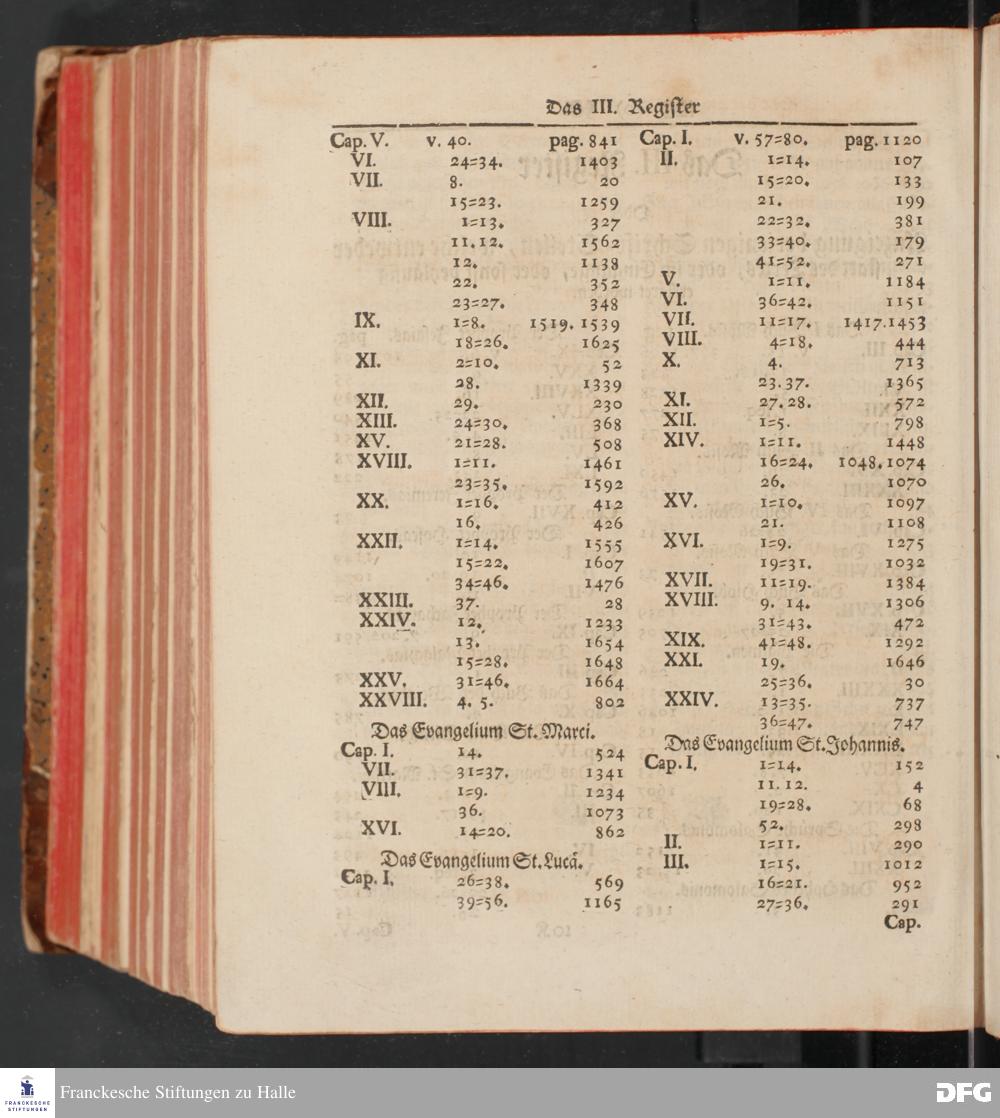 Das III. Register
Cap. V. v. 40. pag. 841
VI. 24=34. 1403
VII. 8. 20
15=23. 1259
VIII. 1=13. 327
11. 12. 1562
12. 1138
22. 352
23=27. 348
IX. 1=8. 1519. 1539
18=26. 1625
XI. 2=10. 52
28. 1339
XII. 29. 230
XIII. 24=30. 368
XV. 21=28. 508
XVIII. 1=11. 1461
23=35. 1592
XX. 1=16. 412
16. 426
XXII. 1=14. 1555
15=22. 1607
34=46. 1476
XXIII. 37. 28
XXIV. 12. 1233
13. 1654
15=28. 1648
XXV. 31=46. 1664
XXVIII. 4. 5. 802
Das Evangelium St. Marci.
Cap. I. 14. 524
VII. 31=37. 1341
VIII. 1=9. 1234
36. 1073
XVI. 14=20. 862
Das Evangelium St. Lucä.
Cap. I. 26=38. 569
39=56. 1165
Cap. I. v. 57=80. pag. 1120
II. 1=14. 107
15=20. 133
21. 199
22=32. 381
33=40. 179
41=52. 271
V. 1=11. 1184
VI. 36=42. 1151
VII. 11=17. 1417. 1453
VIII. 4=18. 444
X. 4. 713
23. 37. 1365
XI. 27. 28. 572
XII. 1=5. 798
XIV. 1=11. 1448
16=24. 1048. 1074
26. 1070
XV. 1=10. 1097
21. 1108
XVI. 1=9. 1275
19=31. 1032
XVII. 11=19. 1384
XVIII. 9. 14. 1306
31=43. 472
XIX. 41=48. 1292
XXI. 19. 1646
25=36. 30
XXIV. 13=35. 737
36=47. 747
Das Evangelium St. Johannis.
Cap. I. 1=14. 152
11. 12. 4
19=28. 68
52. 298
II. 1=11. 290
III. 1=15. 1012
16=21. 952
27=36. 291
Cap.
FRANCKESCHE
STIFTUNGEN
Franckesche Stiftungen zu Halle
DFG